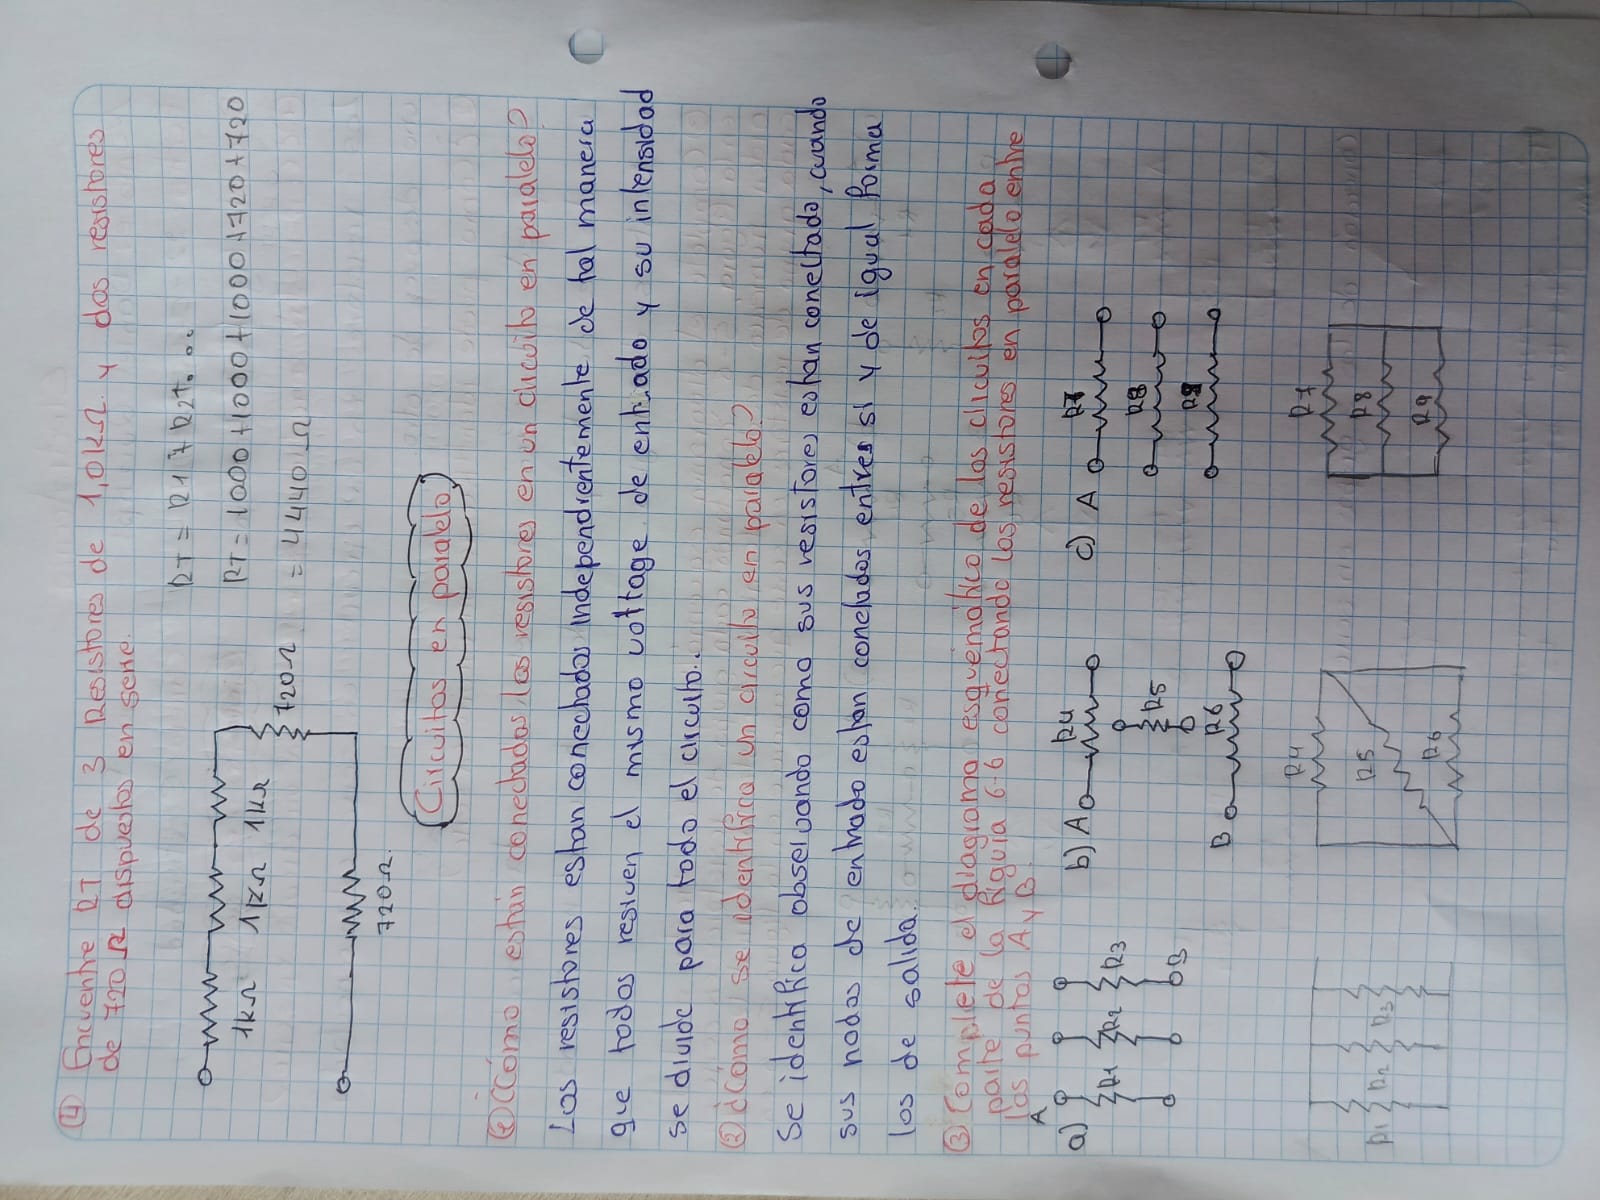 ④ Encuentre RT de 3 Resistores de 1,0kΩ y dos resistores
de 720Ω dispuestos en serie.
RT = R1 + R2+...
RT = 1000+1000+1000+720+720
= 4440 Ω
1kΩ 1kΩ 1kΩ
720Ω
720Ω.
Circuitos en paralelo
① ¿Cómo están conectados los resistores en un circuito en paralelo?
Los resistores estan conectados independientemente de tal manera
que todos resiven el mismo voltage de entrado y su intensidad
se divide para todo el circuito..
② ¿Cómo se identifica un circuito en paralelo?
Se identifica observando como sus resistores estan conectado, cuando
sus nodos de entrado estan conectados entres si y de igual forma
los de salida.
③ Complete el diagrama esquemático de los circuitos en cada
parte de la figura 6-6 conectando los resistores en paralelo entre
los puntos A y B.
a) A R1 R2 R3 B
b) A R4 R5 R6 B
c) A R7 R8 R9
R1 R2 R3
R4 R5 R6
R7 R8 R9